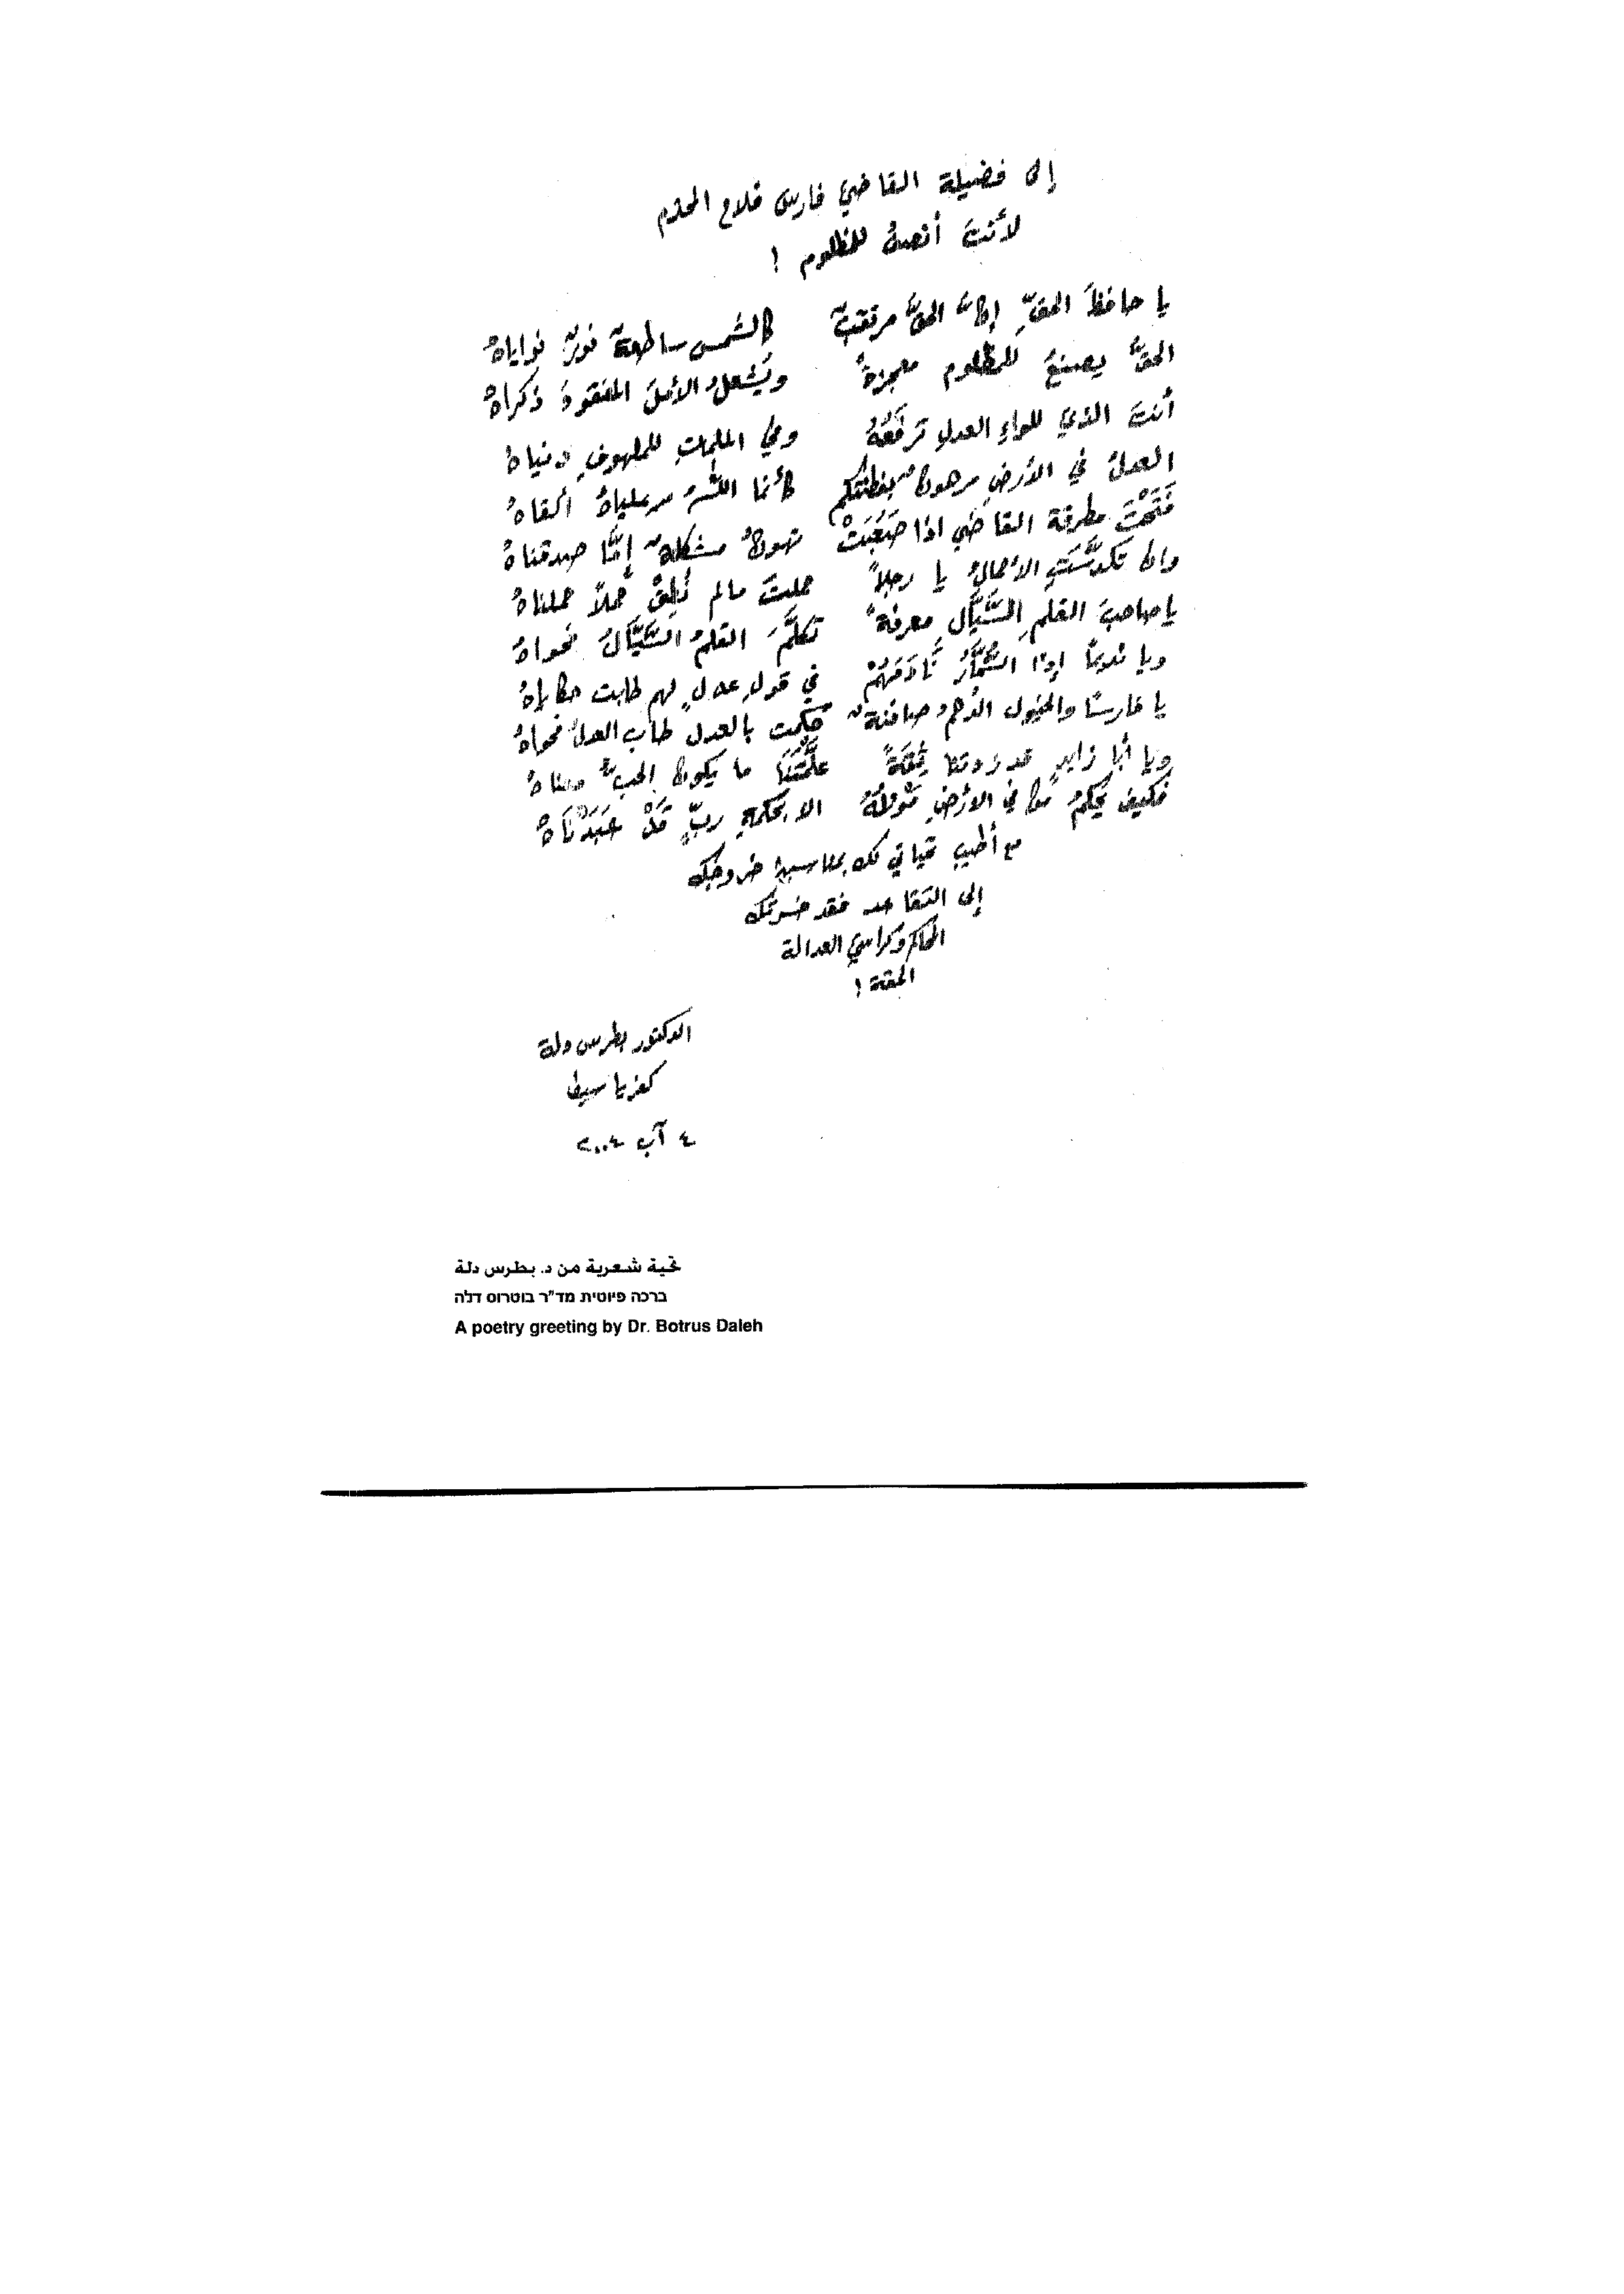 إلى فضيلة القاضي فارس فلاح المحترم
لأنتَ أنصفُ للمظلوم !
يا حافظَ الحقِّ إنَّ الحقَّ مرتقبٌ كالشمس ساطعةٌ نواياهُ
الحقُّ يصنعُ للمظلوم معجزةً ويُشعلُ الأملَ المفقودَ ذكراهُ
أنتَ الذي للواءِ العدلِ ترفَعُهُ وفي الملمات للملهوفِ دنياهُ
العدلُ في الأرضِ مرهونٌ بفطنتكم كأنما اللهُ من علياهُ ألقاهُ
فَتَحْتَ مطرقة القاضي اذا صَعُبَتْ تهونُ مشكلةٌ إمَّا صدقناهُ
وان تكدَّسَتِ الأحمالُ يا رجلاً حملتَ مالم نُطِقْ حملاً حملناهُ
يا صاحبَ القلمِ السَّيَّالِ معرفةً تكلَّمَ القلمُ السَّيَّالُ فحواهُ
ويا نديماً إذا السُّمَّارُ نَادَمَهُمْ في قولِ عدلٍ لهم طابت حكاياهُ
يا فارسًا والخيول الدُّهمُ صافنةٌ حكمت بالعدل طاب العدلُ فحواهُ
ويا أبا زاهرٍ قد زدتنا ثِقَةً علَّمْتَنَا ما يكون الحبُّ معناهُ
فكيف يحكمُ مَن في الأرضِ الا بحكمةِ ربٍّ قَدْ عَبَدْنَاهُ
مع أطيب تحياتي لك بمناسبة خروجك
إلى التقاعد فقد خسرتك
المحاكم وكراسي العدالة
الحقة !
الدكتور بطرس دلة
كفرياسيف
٤ آب ٢٠٠٤
تحية شعرية من د. بطرس دلة
ברכה פיוטית מד"ר בוטרוס דלה
A poetry greeting by Dr. Botrus Daleh